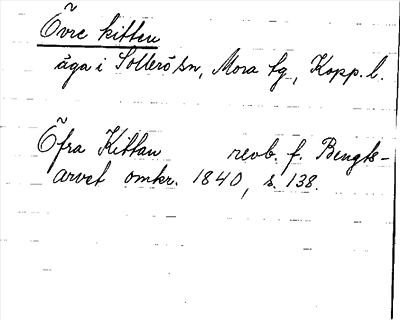 Övre kitten
äga i Sollerö sn, Mora tg, Kopp. l.
Öfra Kittan revb. f. Bengts-
arvet omkr. 1840, s. 138.